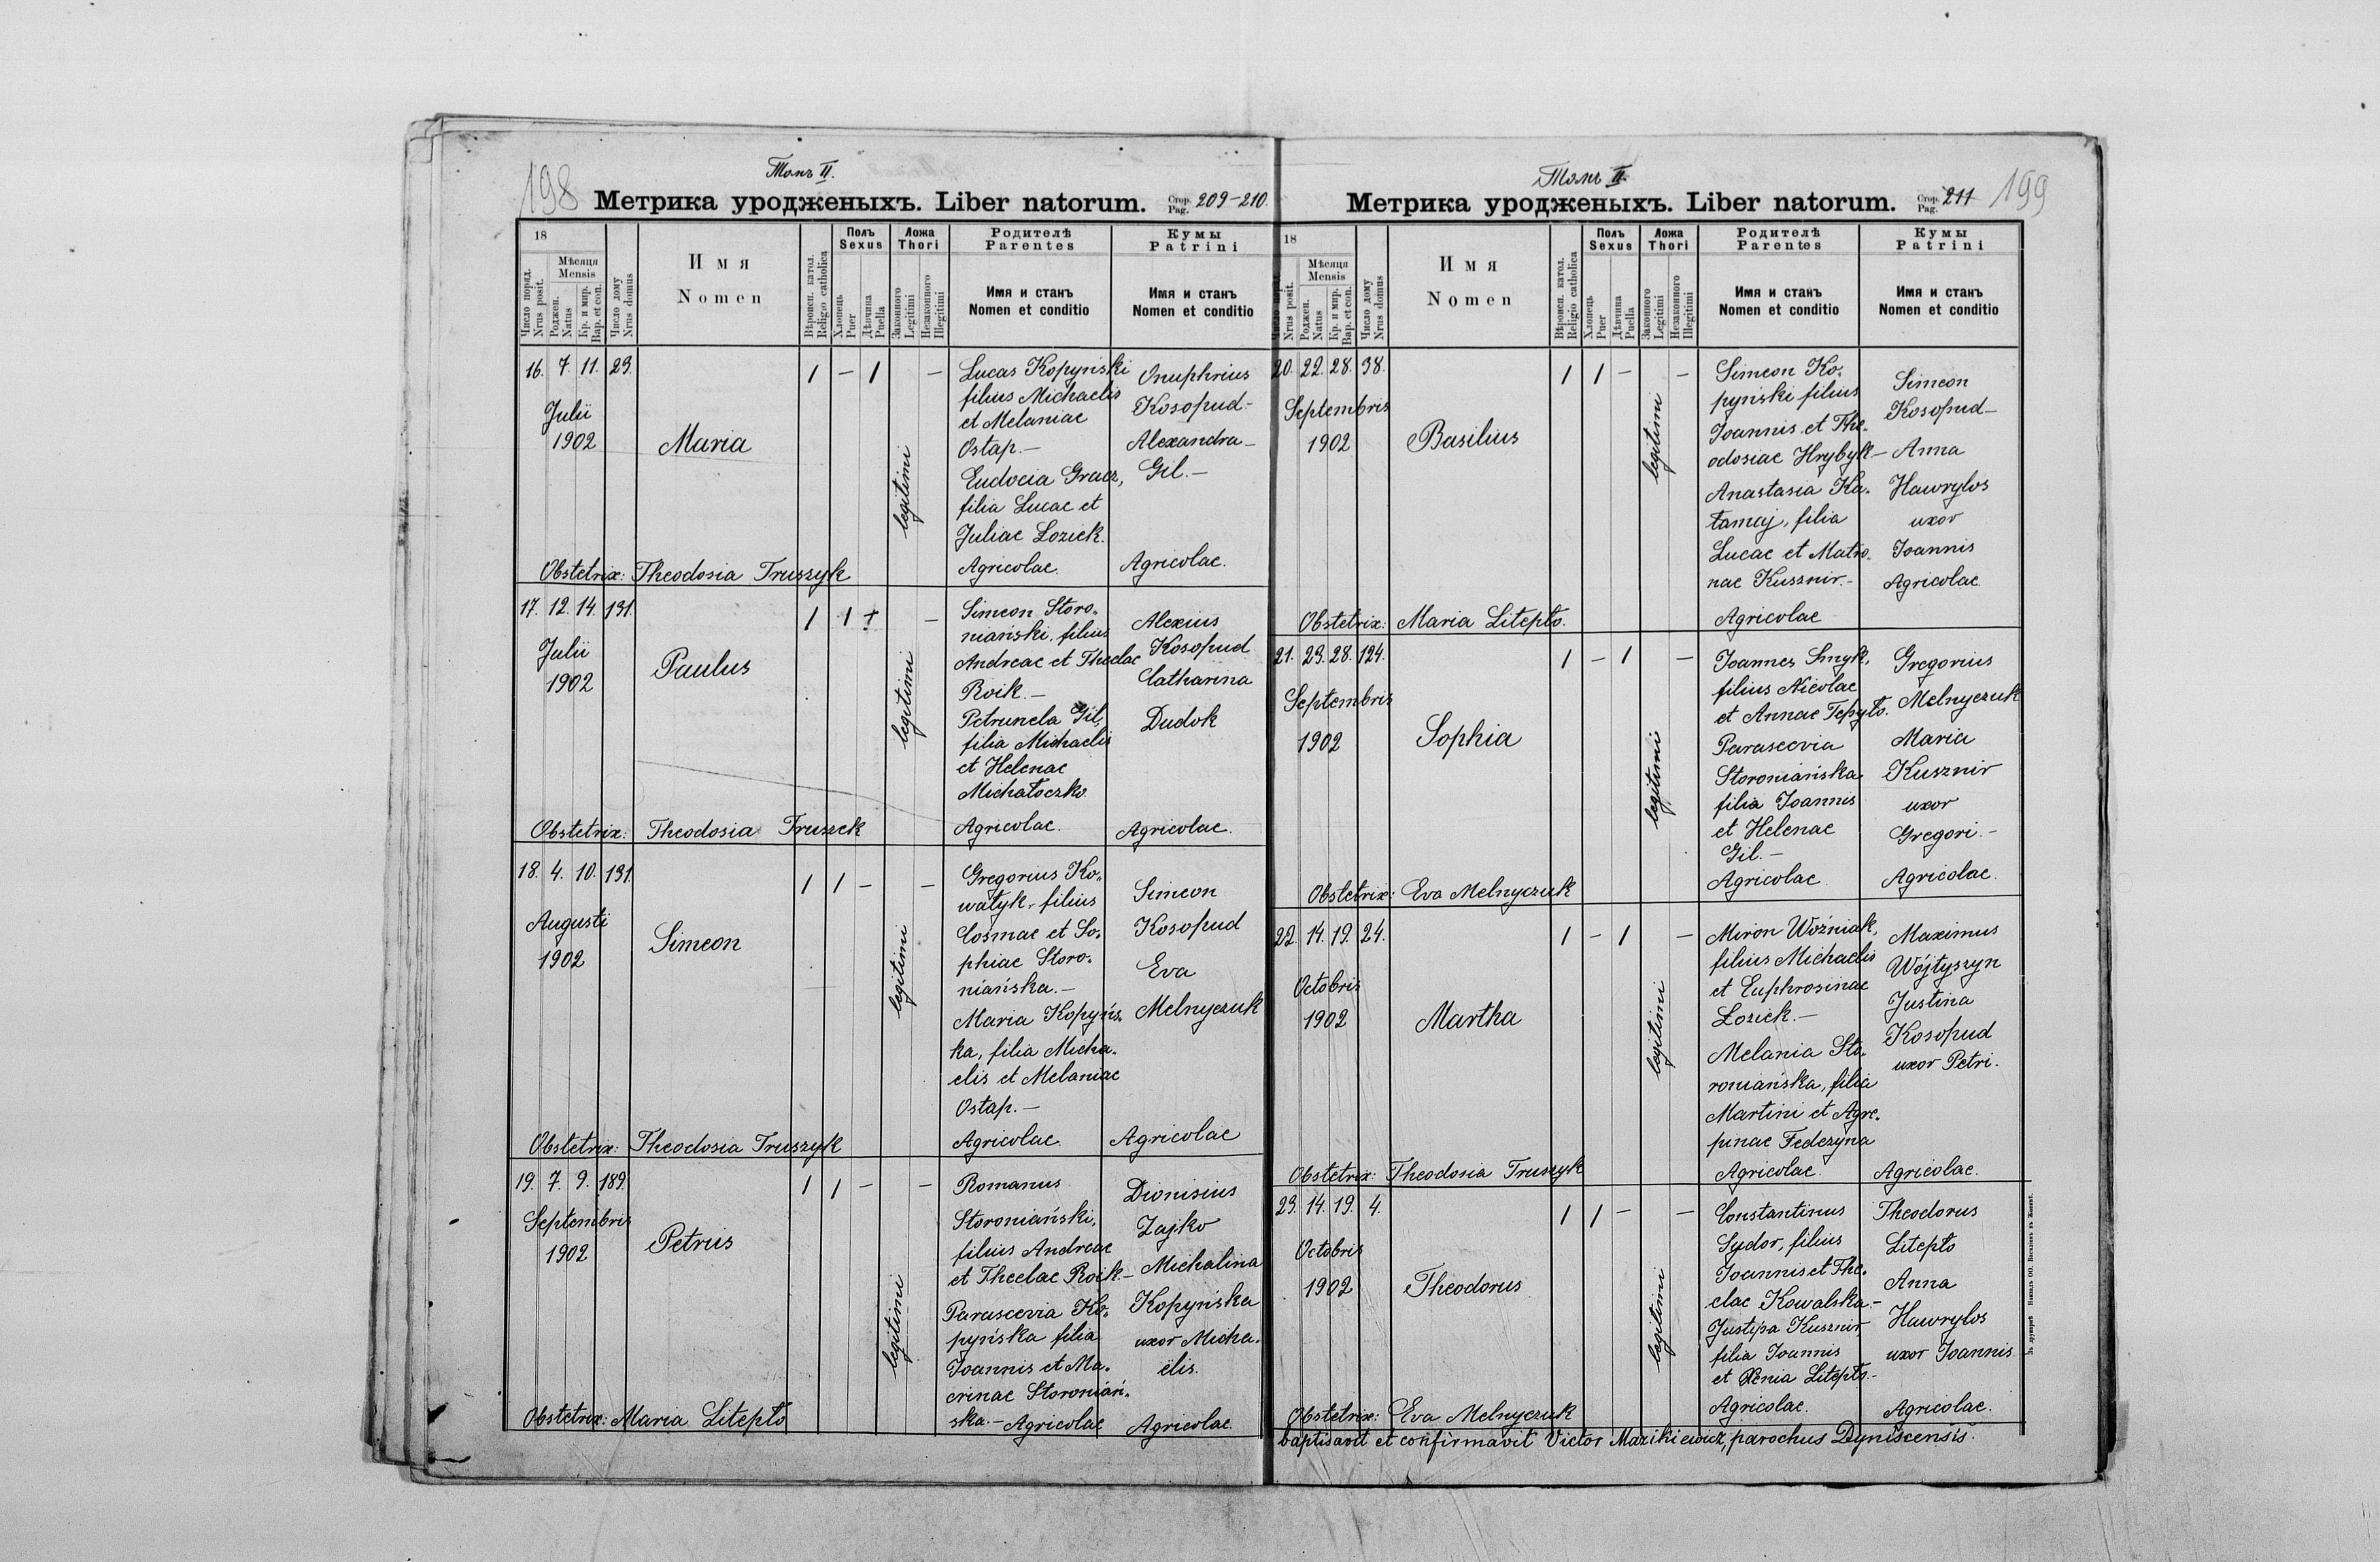 198
Томъ II.
Метрика уродженыхъ. Liber natorum. Стор. Pag. 209-210.
18
Число поряд. Nrus posit.
Мѣсяця Mensis
Роджен. Natus
Кр. и мир. Bap. et con.
Число дому Nrus domus
Имя
Nomen
Вѣроисп. катол. Religio catholica
Полъ Sexus
Хлопець Puer
Дѣвчина Puella
Ложа Thori
Законного Legitimi
Незаконного Illegitimi
Родителѣ
Parentes
Имя и станъ
Nomen et conditio
Кумы
Patrini
Имя и станъ
Nomen et conditio
16. 7. 11. 23.
Julii
1902
Maria
1 – 1 –
legitimi
Lucas Kopyński
filius Michaelis
et Melaniae
Ostap.–
Eudocia Gracz,
filia Lucae et
Juliae Lozick.
Agricolae.
Onuphrius
Kosopud.–
Alexandra–
Gil.–
Agricolae.
Obstetrix: Theodosia Truszyk
17. 12. 14. 131.
Julii
1902
Paulus
1 1 + –
legitimi
Simeon Storo-
niański, filius
Andreae et Theclae
Roik.–
Petrunela Gil,
filia Michaelis
et Helenae
Michałoczko.
Agricolae.
Alexius
Kosopud
Catharina
Dudok
Agricolae.
Obstetrix: Theodosia Truszek
18. 4. 10. 131.
Augusti
1902
Simeon
1 1 – –
legitimi
Gregorius Ko-
watyk, filius
Cosmae et So-
phiae Storo-
niańska.–
Maria Kopyńs-
ka, filia Micha-
elis et Melaniae
Ostap.–
Agricolae.
Simeon
Kosopud
Eva
Melnyczuk
Agricolae
Obstetrix: Theodosia Truszyk
19. 7. 9. 189.
Septembris
1902
Petrus
1 1 – –
legitimi
Romanus
Storoniański,
filius Andreae
et Theclae Roik–
Parascevia Ko-
pyńska filia
Joannis et Ma-
crinae Storoniań-
ska.–Agricolae
Dionisius
Zajko
Michalina
Kopyńska
uxor Micha-
elis.
Agricolae.
Obstetrix: Maria Litepło
Томъ II.
199
Метрика уродженыхъ. Liber natorum. Стор. Pag. 211
18
Число поряд. Nrus posit.
Мѣсяця Mensis
Роджен. Natus
Кр. и мир. Bap. et con.
Число дому Nrus domus
Имя
Nomen
Вѣроисп. катол. Religio catholica
Полъ Sexus
Хлопець Puer
Дѣвчина Puella
Ложа Thori
Законного Legitimi
Незаконного Illegitimi
Родителѣ
Parentes
Имя и станъ
Nomen et conditio
Кумы
Patrini
Имя и станъ
Nomen et conditio
20. 22. 28. 38.
Septembris
1902
Basilius
1 1 – –
legitimi
Simeon Ko-
pyński filius
Joannis et The-
odosiae Hrybyk–
Anastasia Ka-
tamaj, filia
Lucae et Matro-
nae Kusznir.–
Agricolae
Simeon
Kosopud–
Anna
Hawrylos
uxor
Joannis
Agricolae.
Obstetrix: Maria Litepło.
21. 23. 28. 124.
Septembris
1902
Sophia
1 – 1 –
legitimi
Joannes Smyk,
filius Nicolae
et Annae Tepyło.
Parascevia
Storoniańska
filia Joannis
et Helenae
Gil.–
Agricolae.
Gregorius
Melnyczuk
Maria
Kusznir
uxor
Gregori.–
Agricolae.
Obstetrix: Eva Melnyczuk
22. 14. 19. 24.
Octobris
1902
Martha
1 – 1 –
legitimi
Miron Woźniak,
filius Michaelis
et Euphrosinae
Lozick.–
Melania Sto-
roniańska, filia
Martini et Agre-
pinae Fedczyna
Agricolae.
Maximus
Wójtyszyn
Justina
Kosopud
uxor Petri.
Agricolae.
Obstetrix: Theodosia Truszyk
23. 14. 19. 4.
Octobris
1902
Theodorus
1 1 – –
legitimi
Constantinus
Sydor, filius
Joannis et The-
clae Kowalska.–
Justina Kusznir,
filia Joannis
et Xenia Litepło.–
Agricolae.
Theodorus
Litepło
Anna
Hawrylos
uxor Joannis
Agricolae.
Obstetrix: Eva Melnyczuk
baptisavit et confirmavit Victor Mazikiewicz, parochus Dyniscensis.